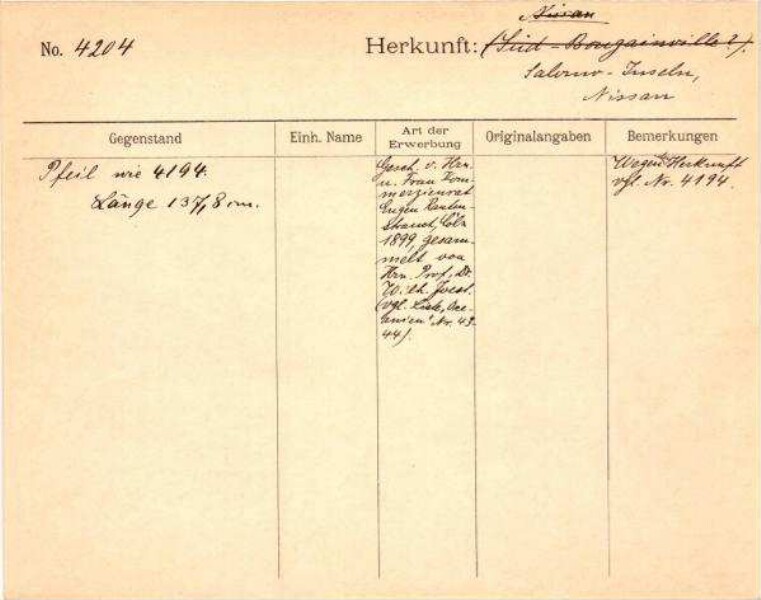 Nissan
No. 4204 Herkunft: (Süd-Bougainville?).
Salomo-Inseln,
Nissan
Gegenstand Einh. Name Art der Erwerbung Originalangaben Bemerkungen
Pfeil wie 4194.
Länge 137,8 cm.
Gesch. v. Hrn.
u. Frau Kom-
merzienrat
Eugen Rauten-
strauch, Cöln
1899, gesam-
melt von
Hrn. Prof. Dr.
Wilh. Joest.
(vgl. Liste „Oce-
anien" Nr. 43-
44).
Wegen der Herkunft
vgl. Nr. 4194.